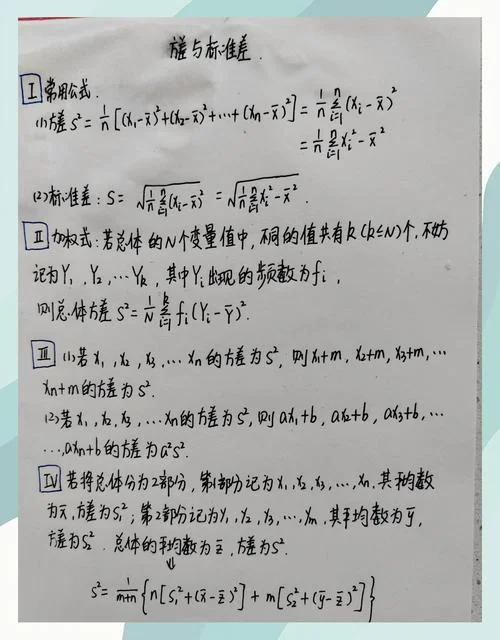 方差与标准差.
Ⅰ 常用公式.
(1)方差 s² = 1/n[(x₁-x̄)²+(x₂-x̄)²+…+(xₙ-x̄)²] = 1/n ∑ⁿᵢ₌₁(xᵢ-x̄)²
= 1/n ∑ⁿᵢ₌₁xᵢ²-x̄²
(2)标准差: S = √(1/n ∑ⁿᵢ₌₁(xᵢ-x̄)²) = √(1/n ∑ⁿᵢ₌₁xᵢ²-x̄²).
Ⅱ 加权式:若总体的N个变量值中,不同的值共有k(k≤N)个,不妨
记为Y₁,Y₂,…Yₖ,其中Yᵢ出现的频数为fᵢ,
则总体方差 s² = 1/N ∑ᵏᵢ₌₁fᵢ(Yᵢ-Ȳ)².
Ⅲ (1)若x₁,x₂,x₃,…xₙ的方差为s²,则x₁+m,x₂+m,x₃+m,…
xₙ+m的方差为s².
(2)若x₁,x₂,x₃,…xₙ的方差为s²,则ax₁+b,ax₂+b,ax₃+b,…
…,axₙ+b的方差为a²s².
Ⅳ 若将总体分为2部分,第1部分记为x₁,x₂,x₃,…,xₙ,其平均数
为x̄,方差为s₁²;第2部分记为y₁,y₂,y₃,…,yₘ,其平均数为ȳ,
方差为s₂². 总体的平均数为z̄,方差为s².
⇓
s² = 1/(m+n){n[s₁²+(x̄-z̄)²]+m[s₂²+(ȳ-z̄)²]}